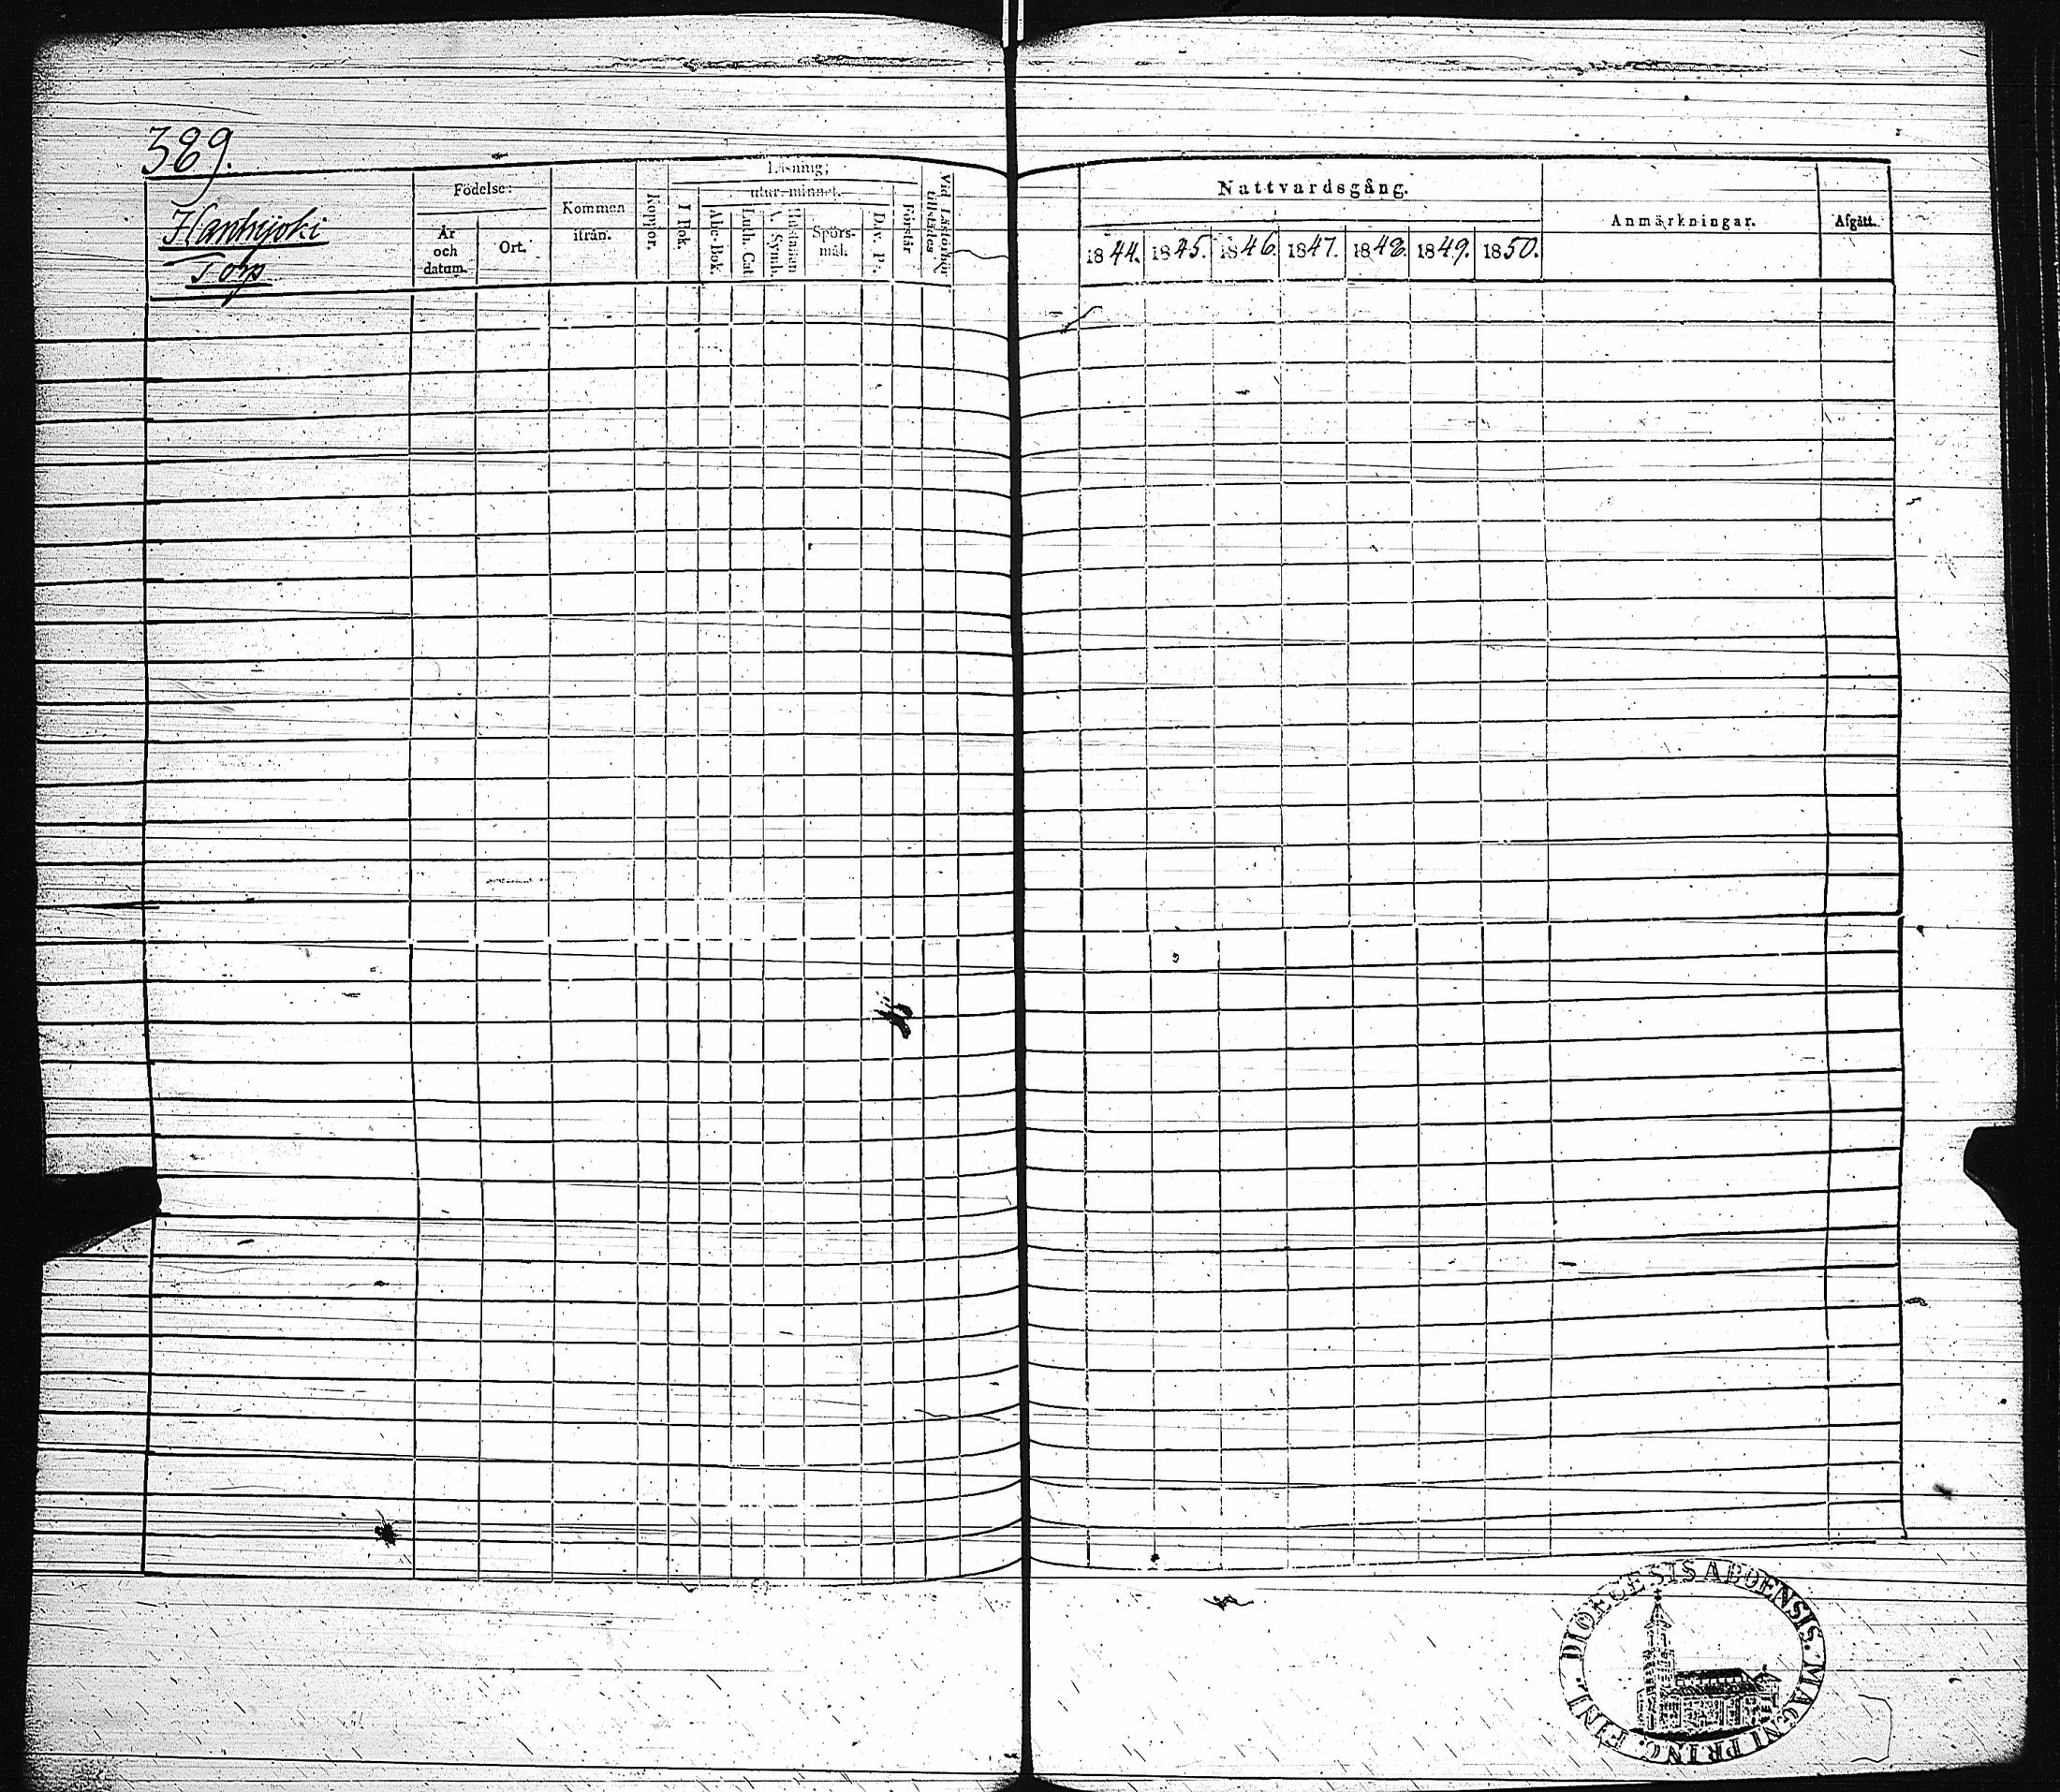 389.
Hanhijoki
Torp
Födelse:
År
och
datum.
Ort.
Kommen
ifrån.
Koppor.
Läsning;
utur minnet.
I Bok.
Abc-Bok.
Luth. Cat.
A. Symb.
Spörs-
mål.
Dav. Ps.
Förstår
Vid Läsförhör
tillstädes
Nattvardsgång.
1844. 1845. 1846. 1847. 1848. 1849. 1850.
Anmärkningar.
Afgått.
DIOECESIS ABOENSIS. MAGNI PRINC. FINL.